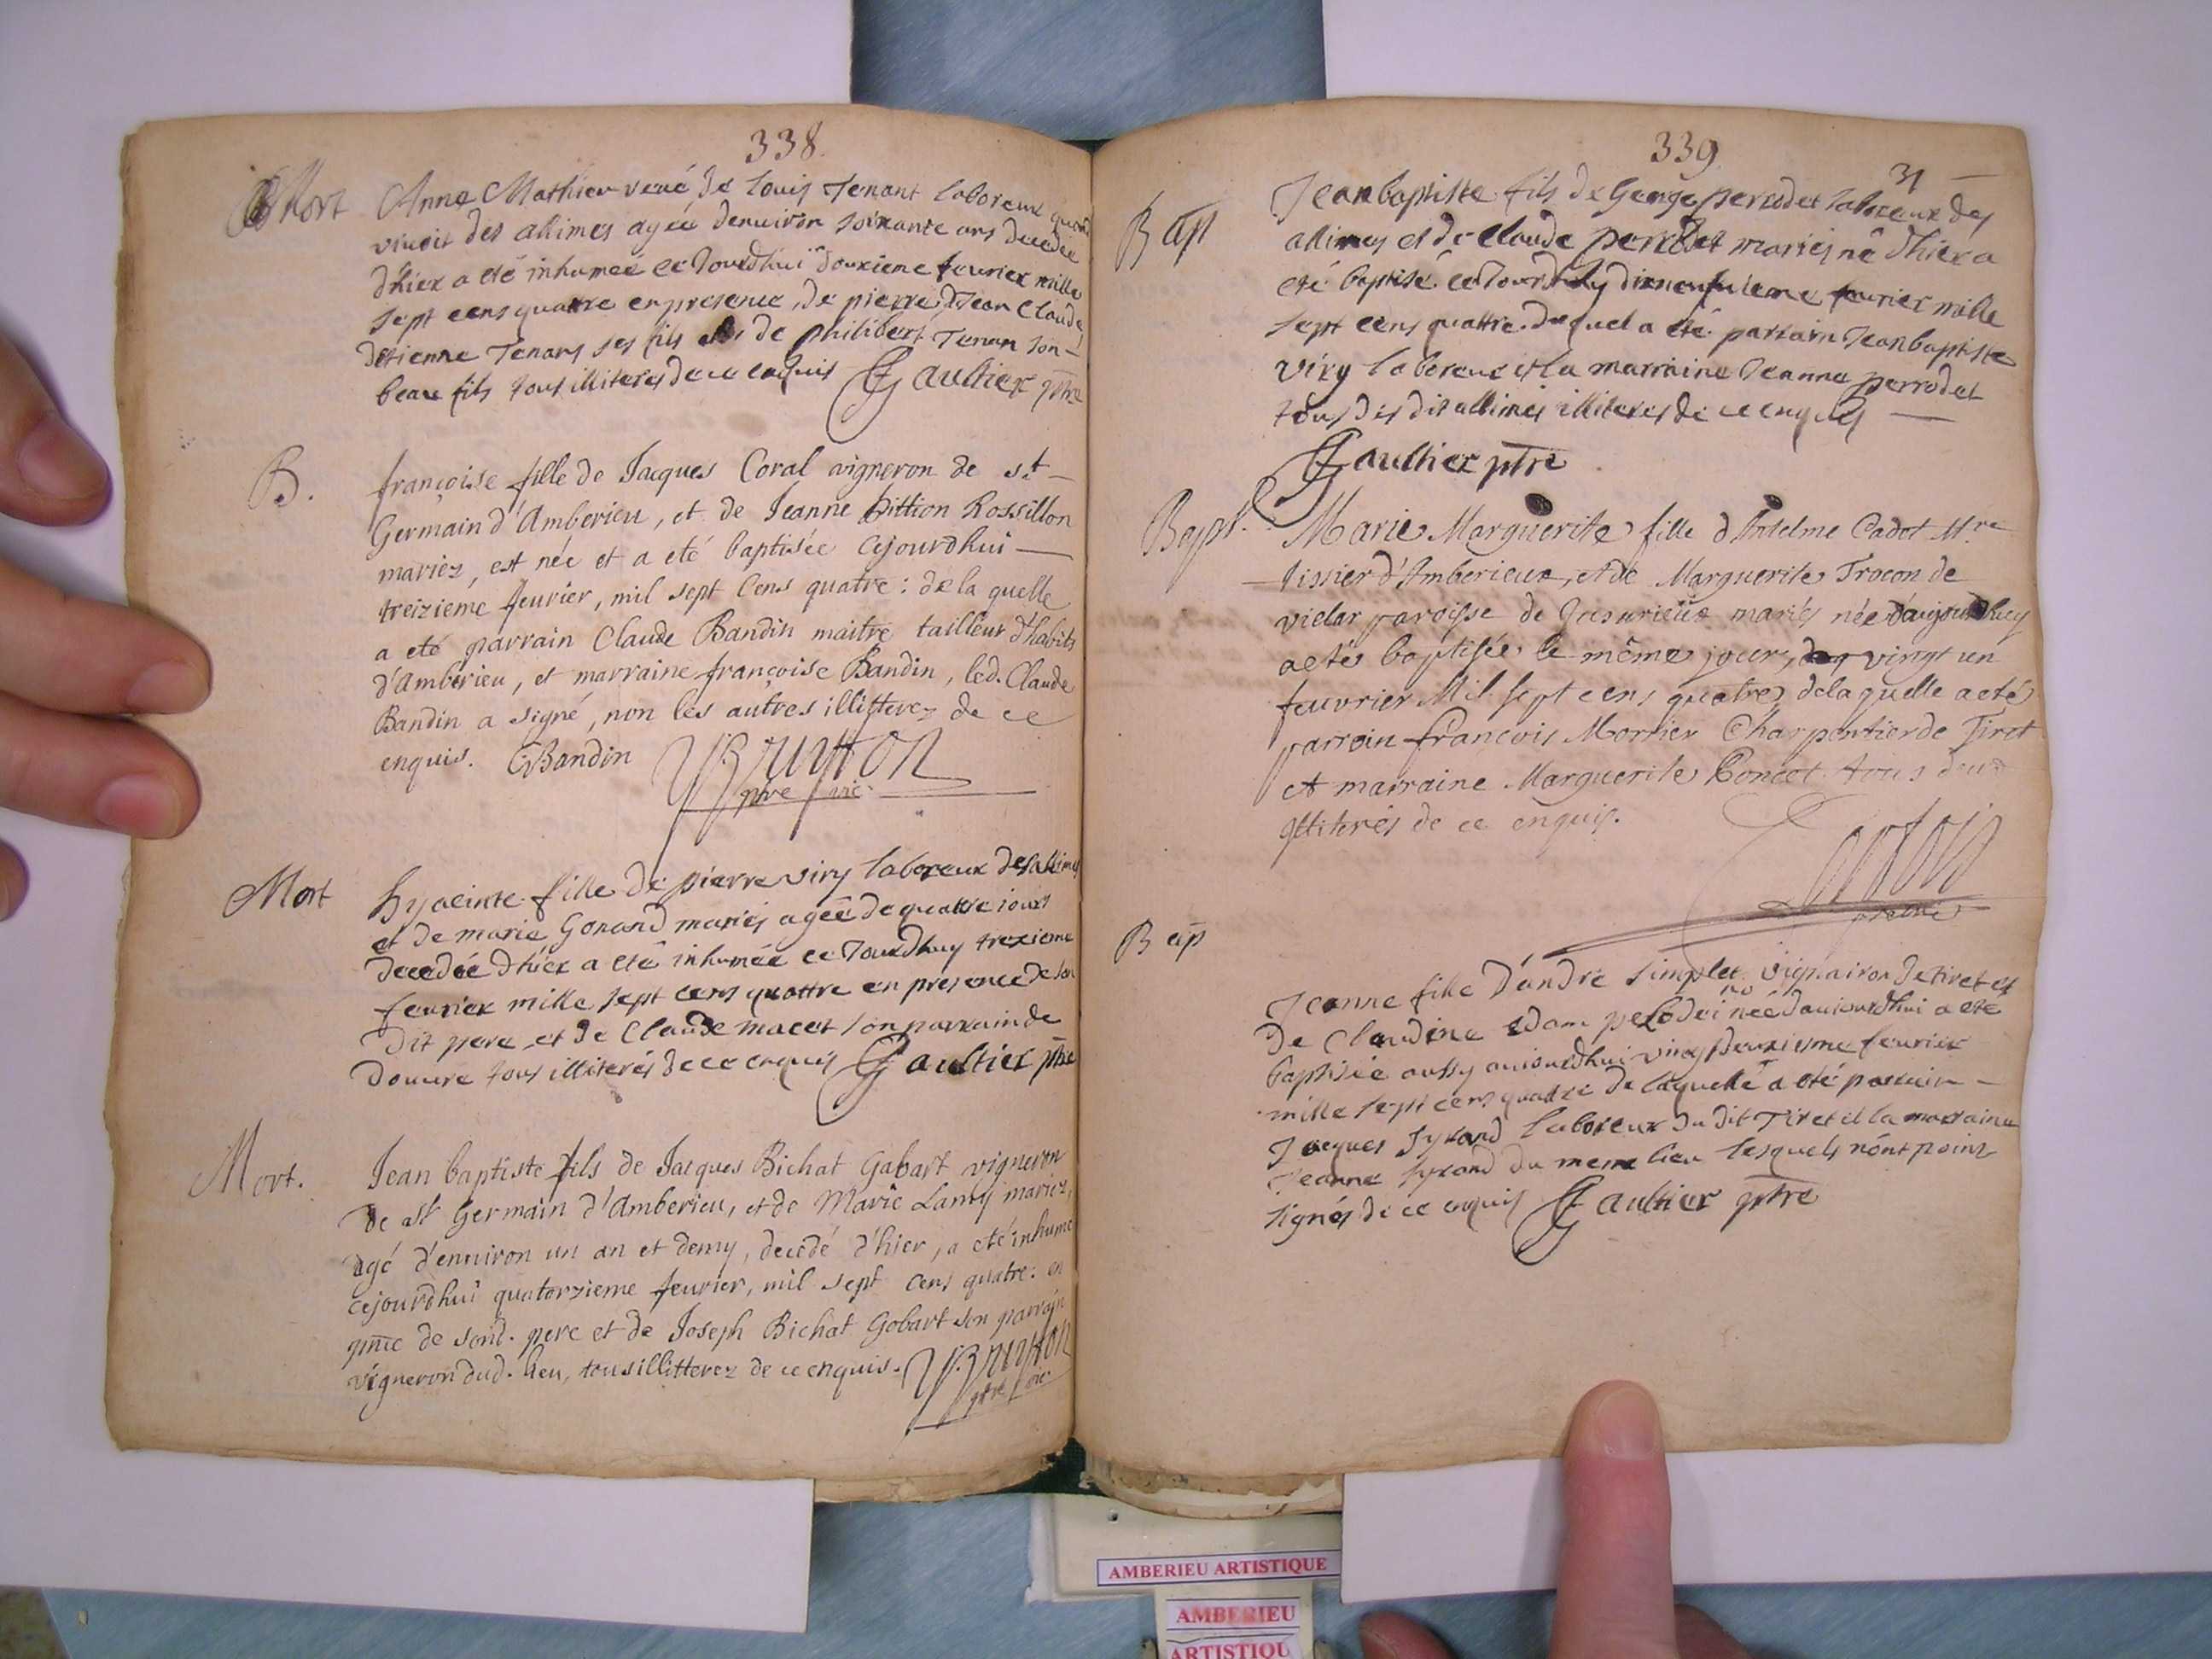 338.
Mort
Anne Mathieu veue de louis Tenant laboreur quand
vivoit des allimes agée denuiron soixante ans decedee
d'hier a eté inhumeé ce Jourdhui douxieme feurier mille
sept cens quatre en presence de pierre, d Jean Claude,
detienne Tenans ses fils et de philibert Tenan son-
beau fils tous illiteres de ce enquis Gaultier ptre
B.
françoise fille de Jacques Coral vigneron de st-
Germain d'Amberieu, et de Jeanne Pittion Rossillon
mariez, est née et a eté baptisée cejourdhui
treizieme feurier, mil sept cens quatre: de la quelle
a eté parrain Claude Bandin maitre tailleur d'habits
d'Amberieu, et marraine françoise Bandin, led. Claude
Bandin a signé, non les autres illitterez de ce
enquis. CBandin
ptre vic.
Mort
hyacinte fille de pierre viry laboreur des allimes
et de marie Gonand mariés agée de quattre iours
decedée d'hier a eté inhumée ce Jourdhuy trezieme
feurier mille sept cens quattre en presence de son
dit pere et de Claude macet son parrain de
douure tous illiterés de ce enquis Gaultier ptre
Mort.
Jean baptiste fils de Jacques Bichat Gabart vigneron
de st Germain d'Amberieu, et de Marie Lamy mariez,
agé d'enuiron un an et demy, decedé d'hier, a eté inhumé
cejourdhui quatorzieme feurier, mil sept cens quatre: en
pnce de sond. pere et de Joseph Bichat Gobart son parrain
vigneron dud. lieu, tous illitterez de ce enquis.
ptre vic.
339
31
Bapt
Jean baptiste fils de George perrodet laboreur des
allimes et de Claude perrodet mariés né d'hier a
eté baptisé ce Jourdhuy dixneufuieme feurier mille
sept cens quattre duquel a eté parrain Jean baptiste
viry laboreur et la marraine Jeanne perrodet
tous des dit allimes illiteres de ce enquis
Gaultier ptre
Bapt.
Marie Marguerite fille d'Anselme Cadot Mre
tissier d'Amberieux, et de Marguerite Trocon de
vielar paroisse de Jusurieux mariés née d'aujourdhuy
a eté baptisée le même jour, vingt un
feuvrier Mil sept cens quatre, de la quelle a eté
parroin françois Morrier Charpentier de Tiret
et marraine Marguerite Poncet tous deux
illiterés de ce enquis.
Bap
Jeanne fille d'andré simplet vignairon de tiret et
de Claudine née d'auiourdhui a eté
baptisée aussy auiourdhui vingt deuxiesme feurier
mille sept cens quatre de laquelle a eté parrain -
Jacques Syrand laboreur du dit Tiret et la marraine
Jeanne Syrand du meme lieu lesquels n'ont point
signés de ce enquis Gaultier ptre
AMBERIEU ARTISTIQUE
AMBERIEU
ARTISTIQU